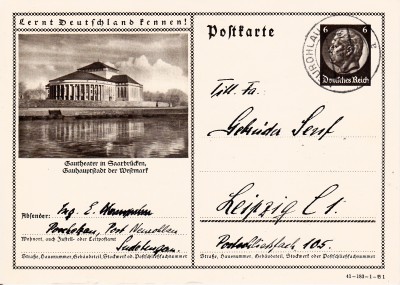 Lernt Deutschland kennen!
Gautheater in Saarbrücken,
Gauhauptstadt der Westmark
Absender: Ing. E.
Post
Wohnort, auch Zustell- oder Leitpostamt
Sudetengau.
Straße, Hausnummer, Gebäudeteil, Stockwerk od. Postschließfachnummer
Postkarte
6 6
Deutsches Reich
Titl. Fa.
Gebrüder Senf
Leipzig C 1.
Postschließfach 105.
Straße, Hausnummer, Gebäudeteil, Stockwerk od. Postschließfachnummer
41-180-1-B1